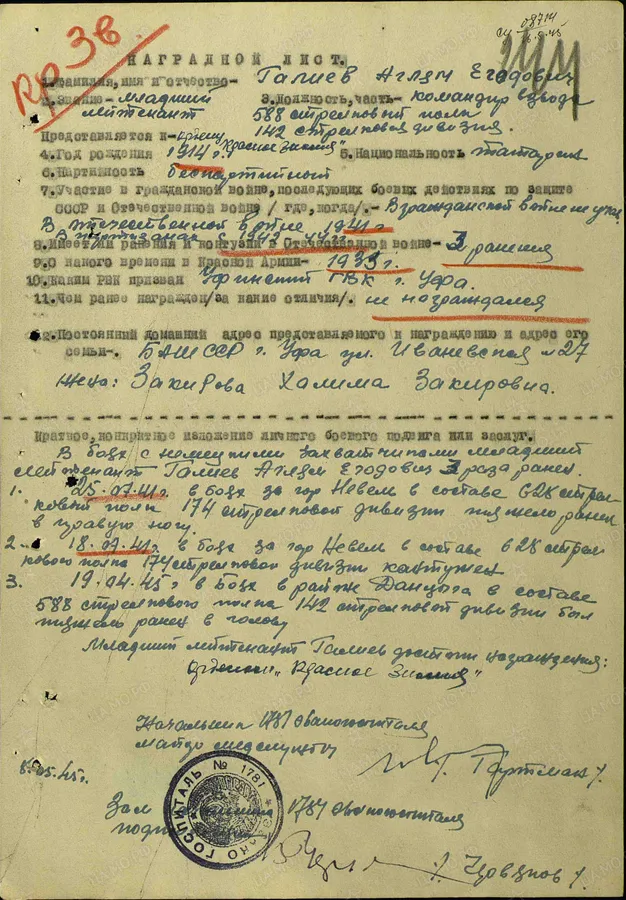 08714
Кр Зв
НАГРАДНОЙ ЛИСТ.
1.Фамилия,имя и отчество- Галиев Аглям Егодович
2.Звание- младший 3.Должность,часть- командир взвода
лейтенант 588 стрелковый полк
142 стрелковая дивизия.
Представляется к- ордену "Красное Знамя"
4.Год рождения 1914 г. 5.Национальность татарин
6.Партийность беспартийный
7.Участие в гражданской войне,последующих боевых действиях по защите
СССР и Отечественной войне /где,когда/.- В гражданской войне не уч.
В отечественной войне 1941 г
8.Имеет ли ранения и контузии в Отечественной войне- 3 ранения
9.С какого времени в Красной Армии- 1933 г.
10.Каким РВК призван Уфимский ГВК г. Уфа.
11.Чем ранее награжден/за какие отличия/. не награждался
12.Постоянный домашний адрес представляемого к награждению и адрес его
семьи-. БАШССР г. Уфа ул. Ивановская №27
жена: Закирова Халима Закировна.
Краткое,конкретное изложение личного боевого подвига или заслуг.
В боях с немецкими захватчиками младший
лейтенант Галиев Аглям Егодович 3 раза ранен.
1. 25.07.41г. в боях за гор Невель в составе 628 стрел
кового полка 174 стрелковой дивизии тяжело ранен
в правую ногу.
2. 18.07.41г. в боях за гор Невель в составе 628 стрел
кового полка 174 стрелковой дивизии контужен
3. 19.04.45г в боях в районе Данцига в составе
588 стрелкового полка 142 стрелковой дивизии был
тяжело ранен в голову
Младший лейтенант Галиев достоин награждения:
орденом "Красное Знамя"
Начальник 1781 эвакогоспиталя
майор медслужбы
/ Гартман /.
8.05.45г.
ЭВАКО ГОСПИТАЛЬ № 1781
Зам начальника 1781 эвакогоспиталя